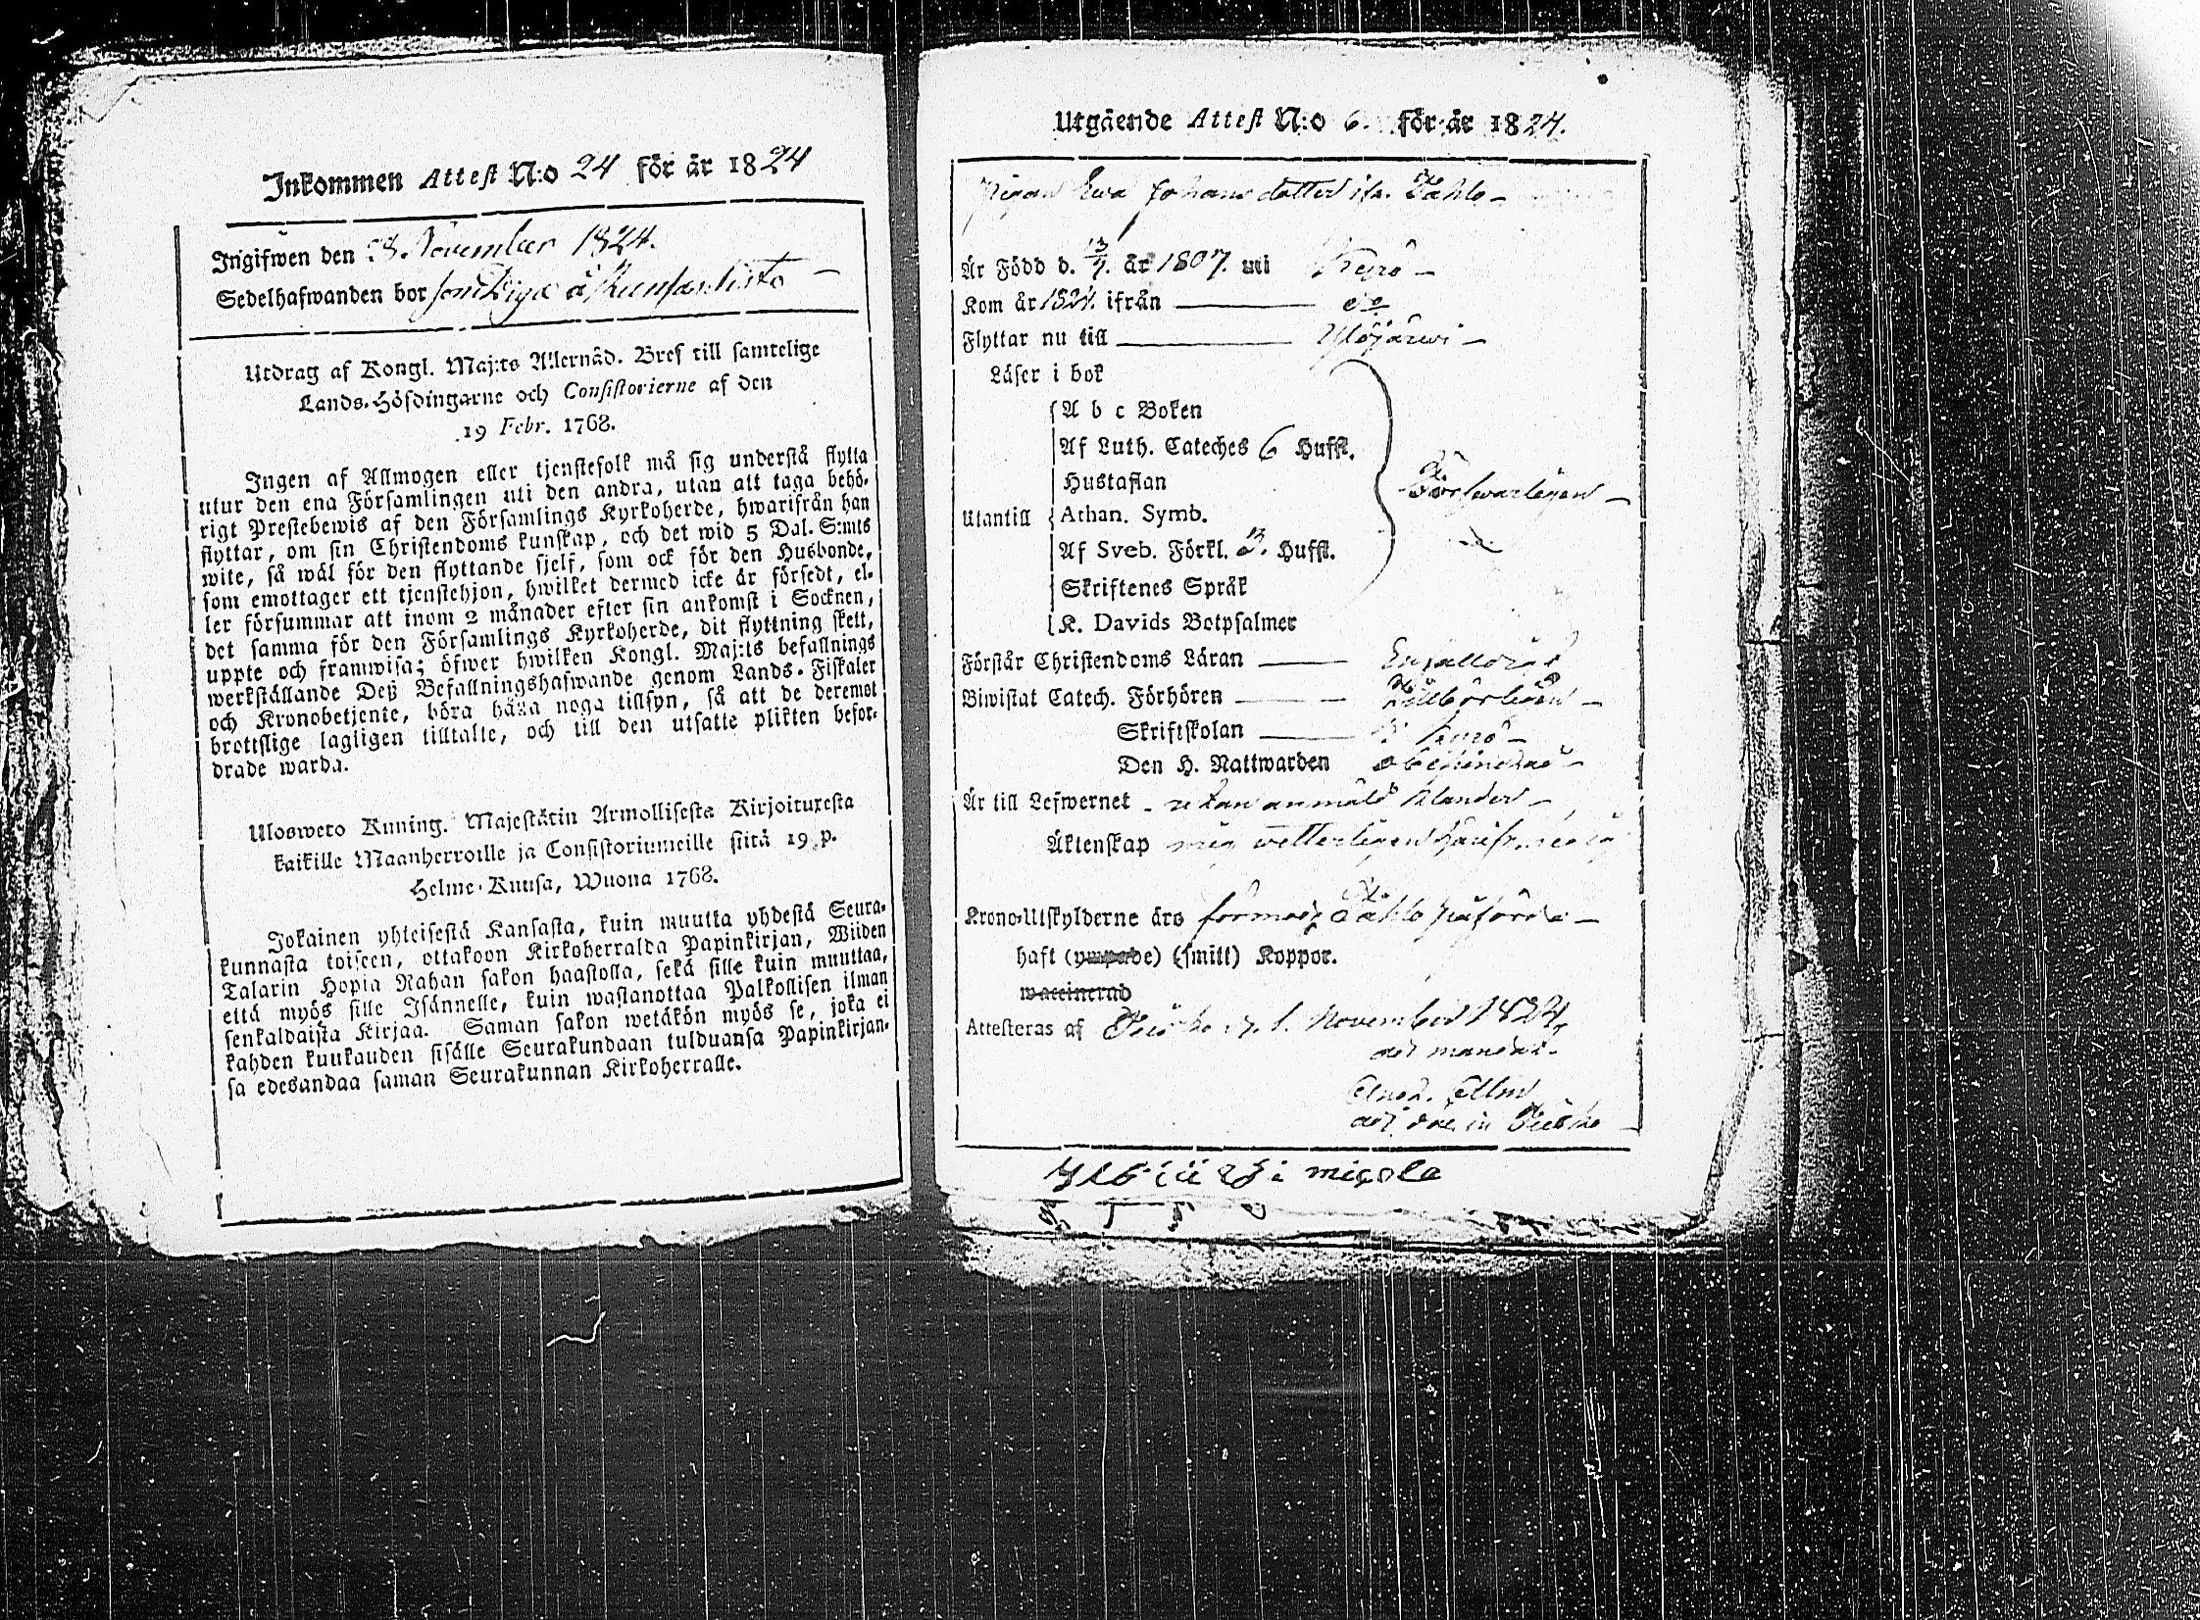 Inkommen Attest N:o 24 för år 1824
Ingifwen den 28. November 1824.
Sedelhafwanden bor som Piga å
Utdrag af Kongl. Maj:ts Allernåd. Bref till samtelige
Lands-Höfdingarne och Consistorierne af den
19 Febr. 1768.
Ingen af Allmogen eller tjenstefolk må sig understå flytta
utur den ena Församlingen uti den andra, utan att taga behö-
rigt Prestebewis af den Församlings Kyrkoherde, hwarifrån han
flyttar, om sin Christendoms kunskap, och det wid 5 Dal. S:mts
wite, så wäl för den flyttande sjelf, som ock för den Husbonde,
som emottager ett tjenstehjon, hwilket dermed icke är försedt, el-
ler försummar att inom 2 månader efter sin ankomst i Socknen,
det samma för den Församlings Kyrkoherde, dit flyttning skett,
uppte och framwisa; öfwer hwilken Kongl. Maj:ts befallnings
werkställande Deß Befallningshafwande genom Lands-Fiskaler
och Kronobetjente, böra hafwa noga tillsyn, så att de deremot
brottslige lagligen tilltalte, och till den utsatte plikten befor-
drade warda.
Ulosweto Kuning. Majestätin Armollisesta Kirjoituxesta
kaikille Maanherroille ja Consistoriumeille siitä 19 p.
Helme-Kuusa, Wuona 1768.
Jokainen yhteisestä Kansasta, kuin muutta yhdestä Seura-
kunnasta toiseen, ottakoon Kirkoherralda Papinkirjan, Wiiden
Talarin Hopia Rahan sakon haastolla, sekä sille kuin muuttaa,
että myös sille Isännelle, kuin wastanottaa Palkollisen ilman
senkaldaista Kirjaa. Saman sakon wetäkön myös se, joka ei
kahden kuukauden sisälle Seurakundaan tulduansa Papinkirjan-
sa edesandaa saman Seurakunnan Kirkoherralle.
Utgående Attest N:o 6. för år 1824.
Pigan Ewa Johansdotter ifr. Tahlo
Är Född d. 13/7. år 1807. uti Kyrö
Kom år 1821. ifrån do
Flyttar nu till Ylöjärwi
Läser i bok
A b c Boken
Af Luth. Cateches 6 Huffst.
Hustaflan
Utantill Athan. Symb. Förswarligen
Af Sveb. Förkl. 3. Huffst.
Skriftenes Språk
K. Davids Botpsalmer
Förstår Christendoms Läran Enfalldigt
Biwistat Catech. Förhören Tillbörligen
Skriftskolan i Kyrö
Den H. Nattwarden obehindrad
Är till Lefwernet utan anmäld klander
Äktenskap mig wetterligen
Krono-Utskylderne äro förmodl. Tahlo påförde
haft (ympade) (smitt) Koppor.
waccinerad
Attesteras af November 1824,
ad mandat.